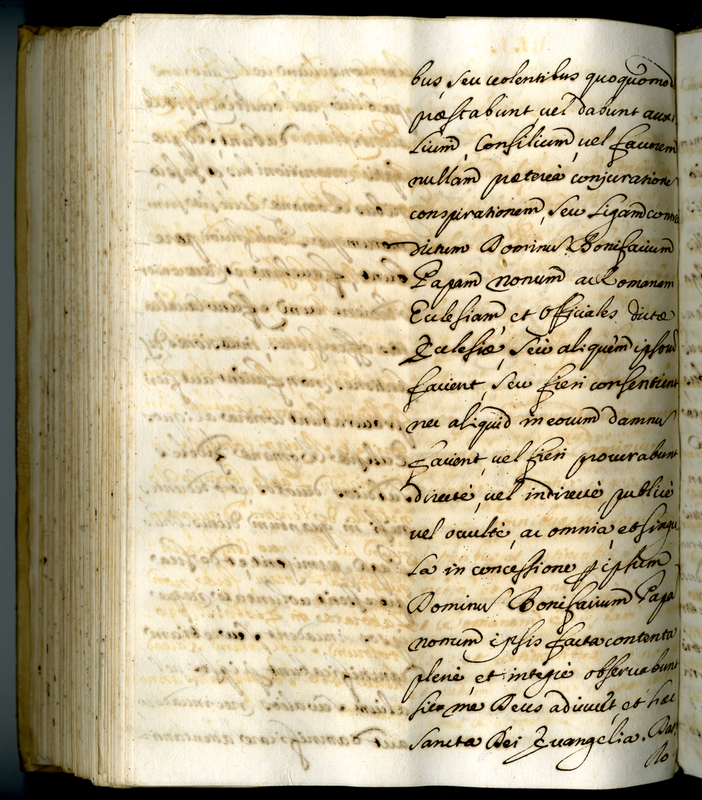 bus, seu volentibus quoquomod
præstabunt, vel dabunt auxi
lium, Consilium, vel favorem
nullam præterea conjuratione
conspirationem, seu Ligam contra
dictum Dominus Bonifacium
Papam nonum ac Romanam
Ecclesiam et officiales dictæ
Ecclesiæ, seu aliquem ipsorum
facient, seu fieri consentient
nec aliquid in eorum damnus
facient, vel fieri procurabunt
directè, vel indirectè, publicè
vel occultè, ac omnia, et singu
la in concessione per ipsum
Dominus Bonifacium Papa
nonum ipsis facta contenta
plenè, et integrè observabunt
sic me Deus adiuvet, et hæc
Sancta Dei Evangelia. Dat